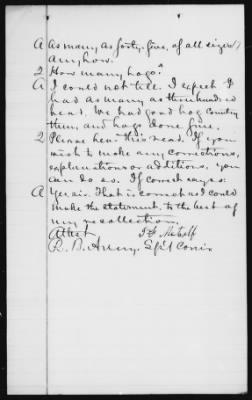 A As many as forty five, of all sizes,
anyhow.
Q How many hogs?
A I could not tell. I expect I
had as many as three hundred
head. We had good hog country
then, and hogs done fine.
Q Please hear this read. If you
wish to make any corrections,
explanations or additions, you
can do so. If correct say so:
A Yes sir. That is correct as I could
make the statement, to the best of
my recollection.
Attest J F Metcalf
R. B. Avery, Sp'l Com'r